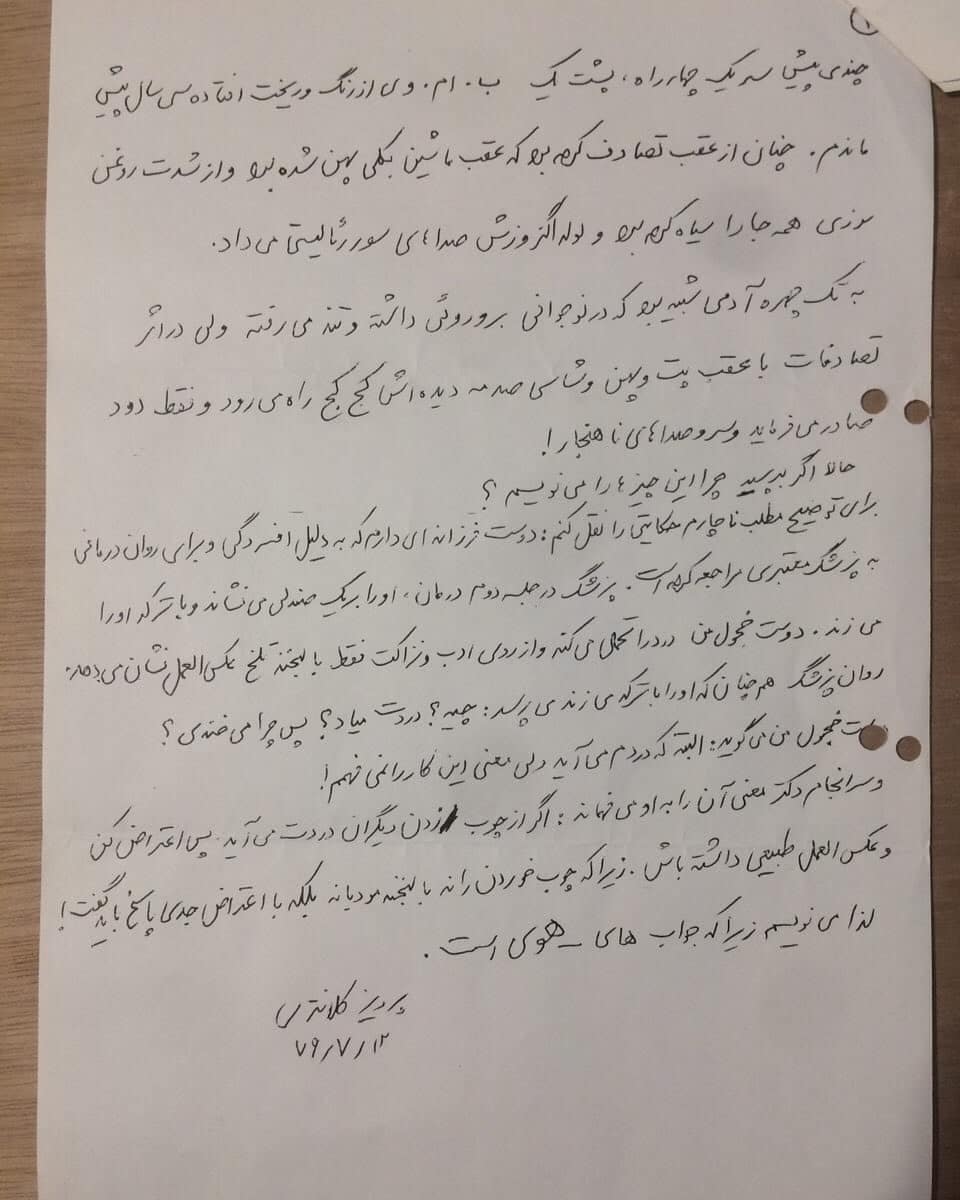 ۱
چندی پیش سر یک چهارراه، پشت یک ب.ام.وی از رنگ و ریخت افتاده سی سال پیش
ماندم. چنان از عقب تصادف کرده بود که عقب ماشین بکلی پهن شده بود و از شدت روغن
سوزی همه جا را سیاه کرده بود و لوله اگزوزش صداهای سوررئالیستی می داد.
به تک چهره آدمی شبیه بود که در نوجوانی برو روئی داشته و تند می رفته ولی در اثر
تصادفات با عقب پت و پهن و شاسی صدمه دیده اش کج کج راه می رود و فقط دود
صادر می فرماید و سر و صداهای ناهنجار!
حالا اگر بپرسید چرا این چیزها را می نویسم؟
برای توضیح مطلب ناچارم حکایتی را نقل کنم: دوست فرزانه ای دارم که به دلیل افسردگی و برای روان درمانی
به پزشک معتبری مراجعه کرده است. پزشگ در جلسه دوم درمان، او را بر یک صندلی می نشاند و با ترکه او را
می زند. دوست خجول من درد را تحمل می کند و از روی ادب و نزاکت فقط با لبخند تلخ عکس العمل نشان می دهد.
روان پزشگ هم چنان که او را با ترکه می زند می پرسد: چیه؟ دردت میاد؟ پس چرا می خندی؟
دوست خجول من می گوید: البته که دردم می آید ولی معنی این کار را نمی فهمم!
و سرانجام دکتر معنی آن را به او می فهماند: اگر از چوب زدن دیگران دردت می آید پس اعتراض کن
و عکس العمل طبیعی داشته باش. زیرا که چوب خوردن را نه با لبخند مودبانه بلکه با اعتراض جدی پاسخ باید گفت!
لذا می نویسم زیرا که جواب های هوی است.
پرویز کلانتری
۷۹/۷/۱۲